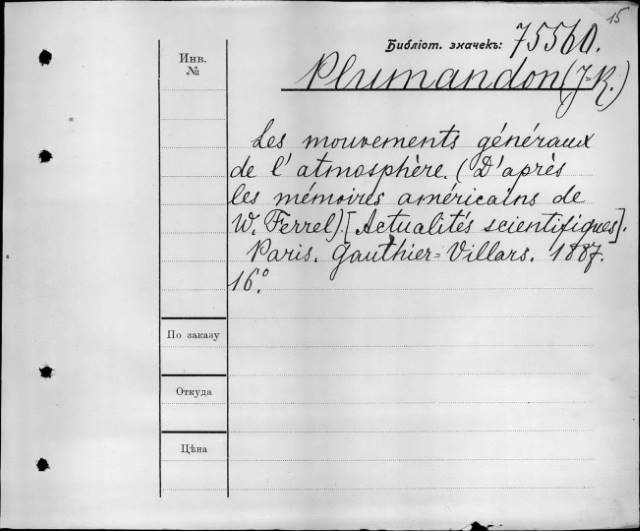 15
Библіот. значекъ: 75560.
Инв.
№
Plumandon (J-R.)
Les mouvements généraux
de l'atmosphère. (D'après
les mémoires américains de
W. Ferrel). [Actualités scientifiques].
Paris. Gauthier=Villars. 1887.
16°.
По заказу
Откуда
Цѣна